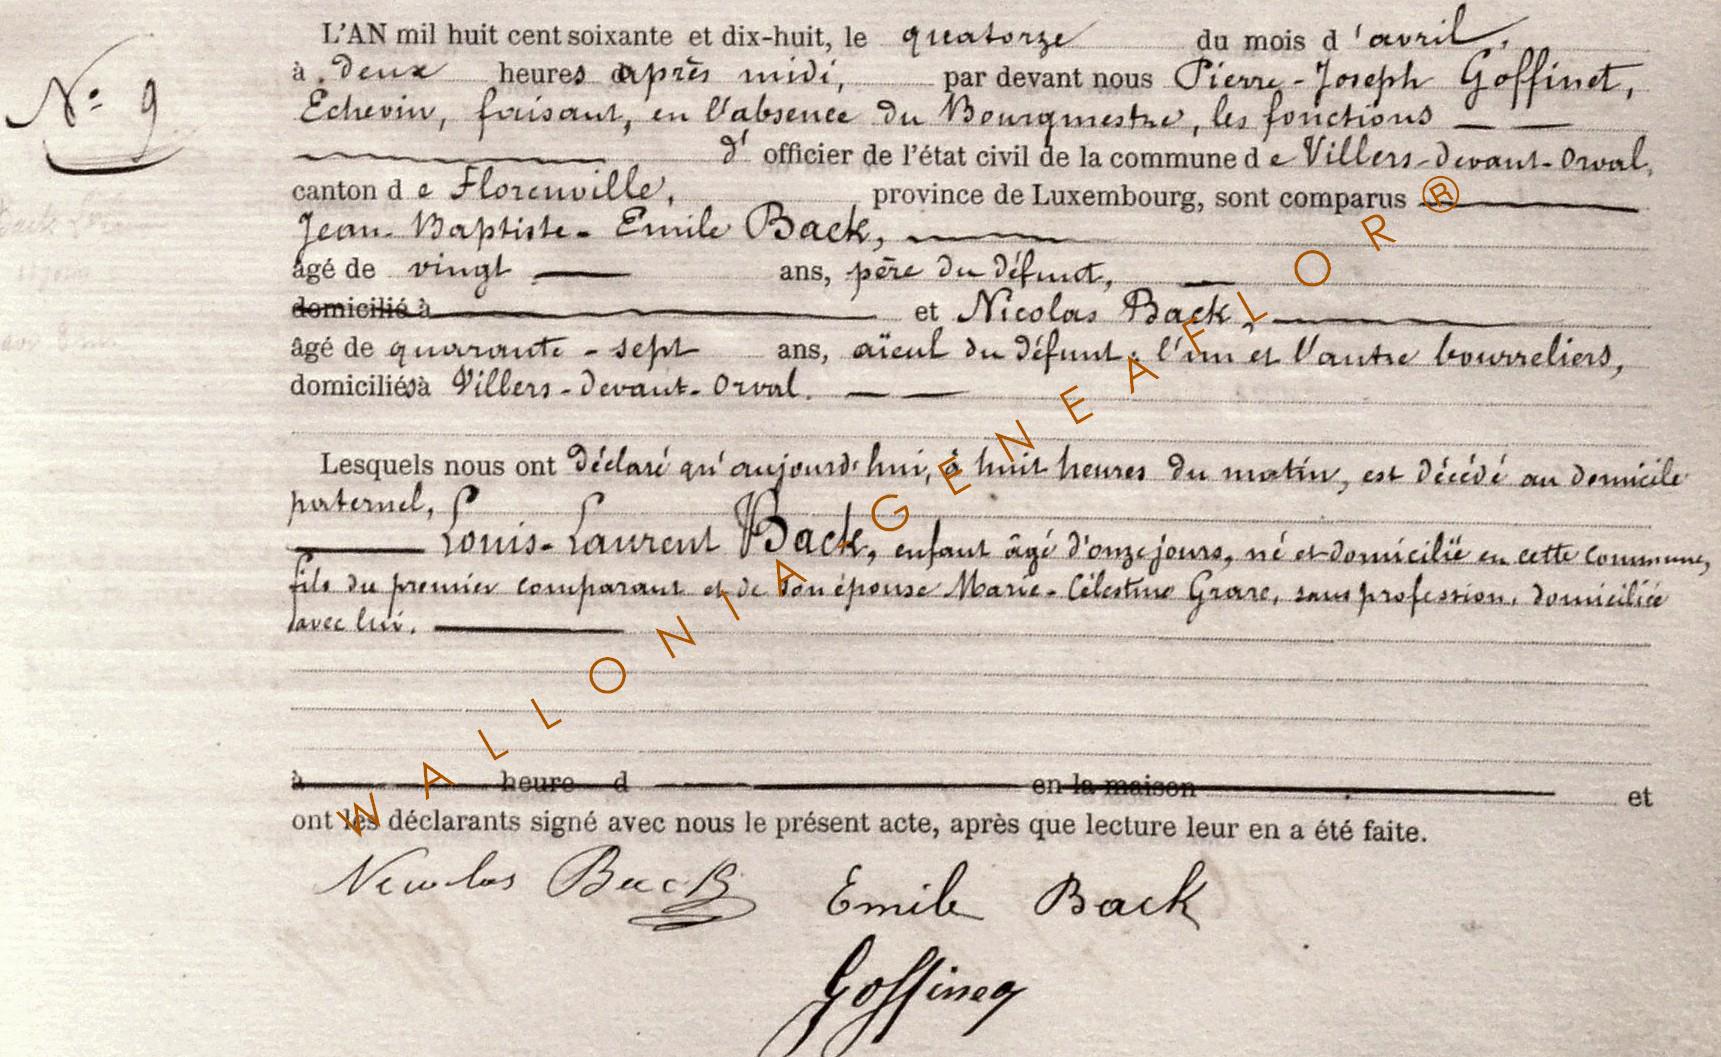 L'AN mil huit cent soixante et dix-huit, le quatorze du mois d'avril,
N° 9
à deux heures après midi, par devant nous Pierre-Joseph Goffinet,
Echevin, faisant, en l'absence du Bourgmestre, les fonctions
d' officier de l'état civil de la commune de Villers-devant-Orval,
canton de Florenville, province de Luxembourg, sont comparus
Jean-Baptiste-Emile Back,
âgé de vingt ans, père du défunt,
domicilié à et Nicolas Back,
âgé de quarante-sept ans, aïeul du défunt, l'un et l'autre bourreliers,
domiciliés à Villers-devant-Orval.
Lesquels nous ont déclaré qu'aujourd'hui, à huit heures du matin, est décédé au domicile
paternel,
Louis-Laurent Back, enfant âgé d'onze jours, né et domicilié en cette commune,
fils du premier comparant et de son épouse Marie-Célestine Grare, sans profession, domiciliée
avec lui.
à heure d en la maison et
ont les déclarants signé avec nous le présent acte, après que lecture leur en a été faite.
Nicolas Back Emile Back
Goffinet
WALLONIA GENEAFLOR®